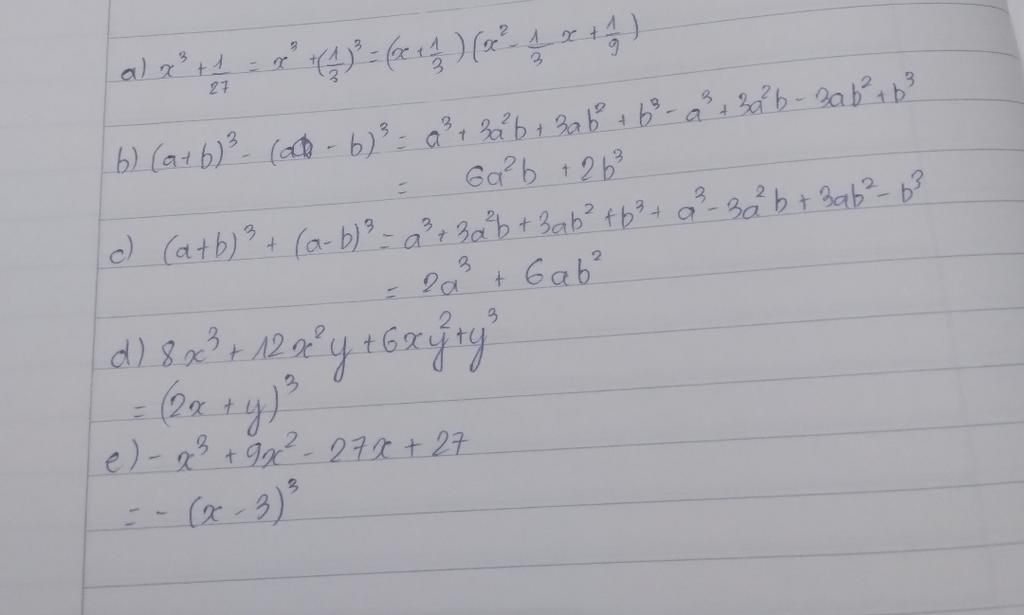 a) x³ + 1/27 = x³ + (1/3)³ = (x + 1/3)(x² - 1/3 x + 1/9)
b) (a+b)³ - (a - b)³ = a³ + 3a²b + 3ab² + b³ - a³ + 3a²b - 3ab² + b³
= 6a²b + 2b³
c) (a+b)³ + (a-b)³ = a³ + 3a²b + 3ab² + b³ + a³ - 3a²b + 3ab² - b³
= 2a³ + 6ab²
d) 8x³ + 12x²y + 6xy² + y³
= (2x + y)³
e) - x³ + 9x² - 27x + 27
= - (x - 3)³